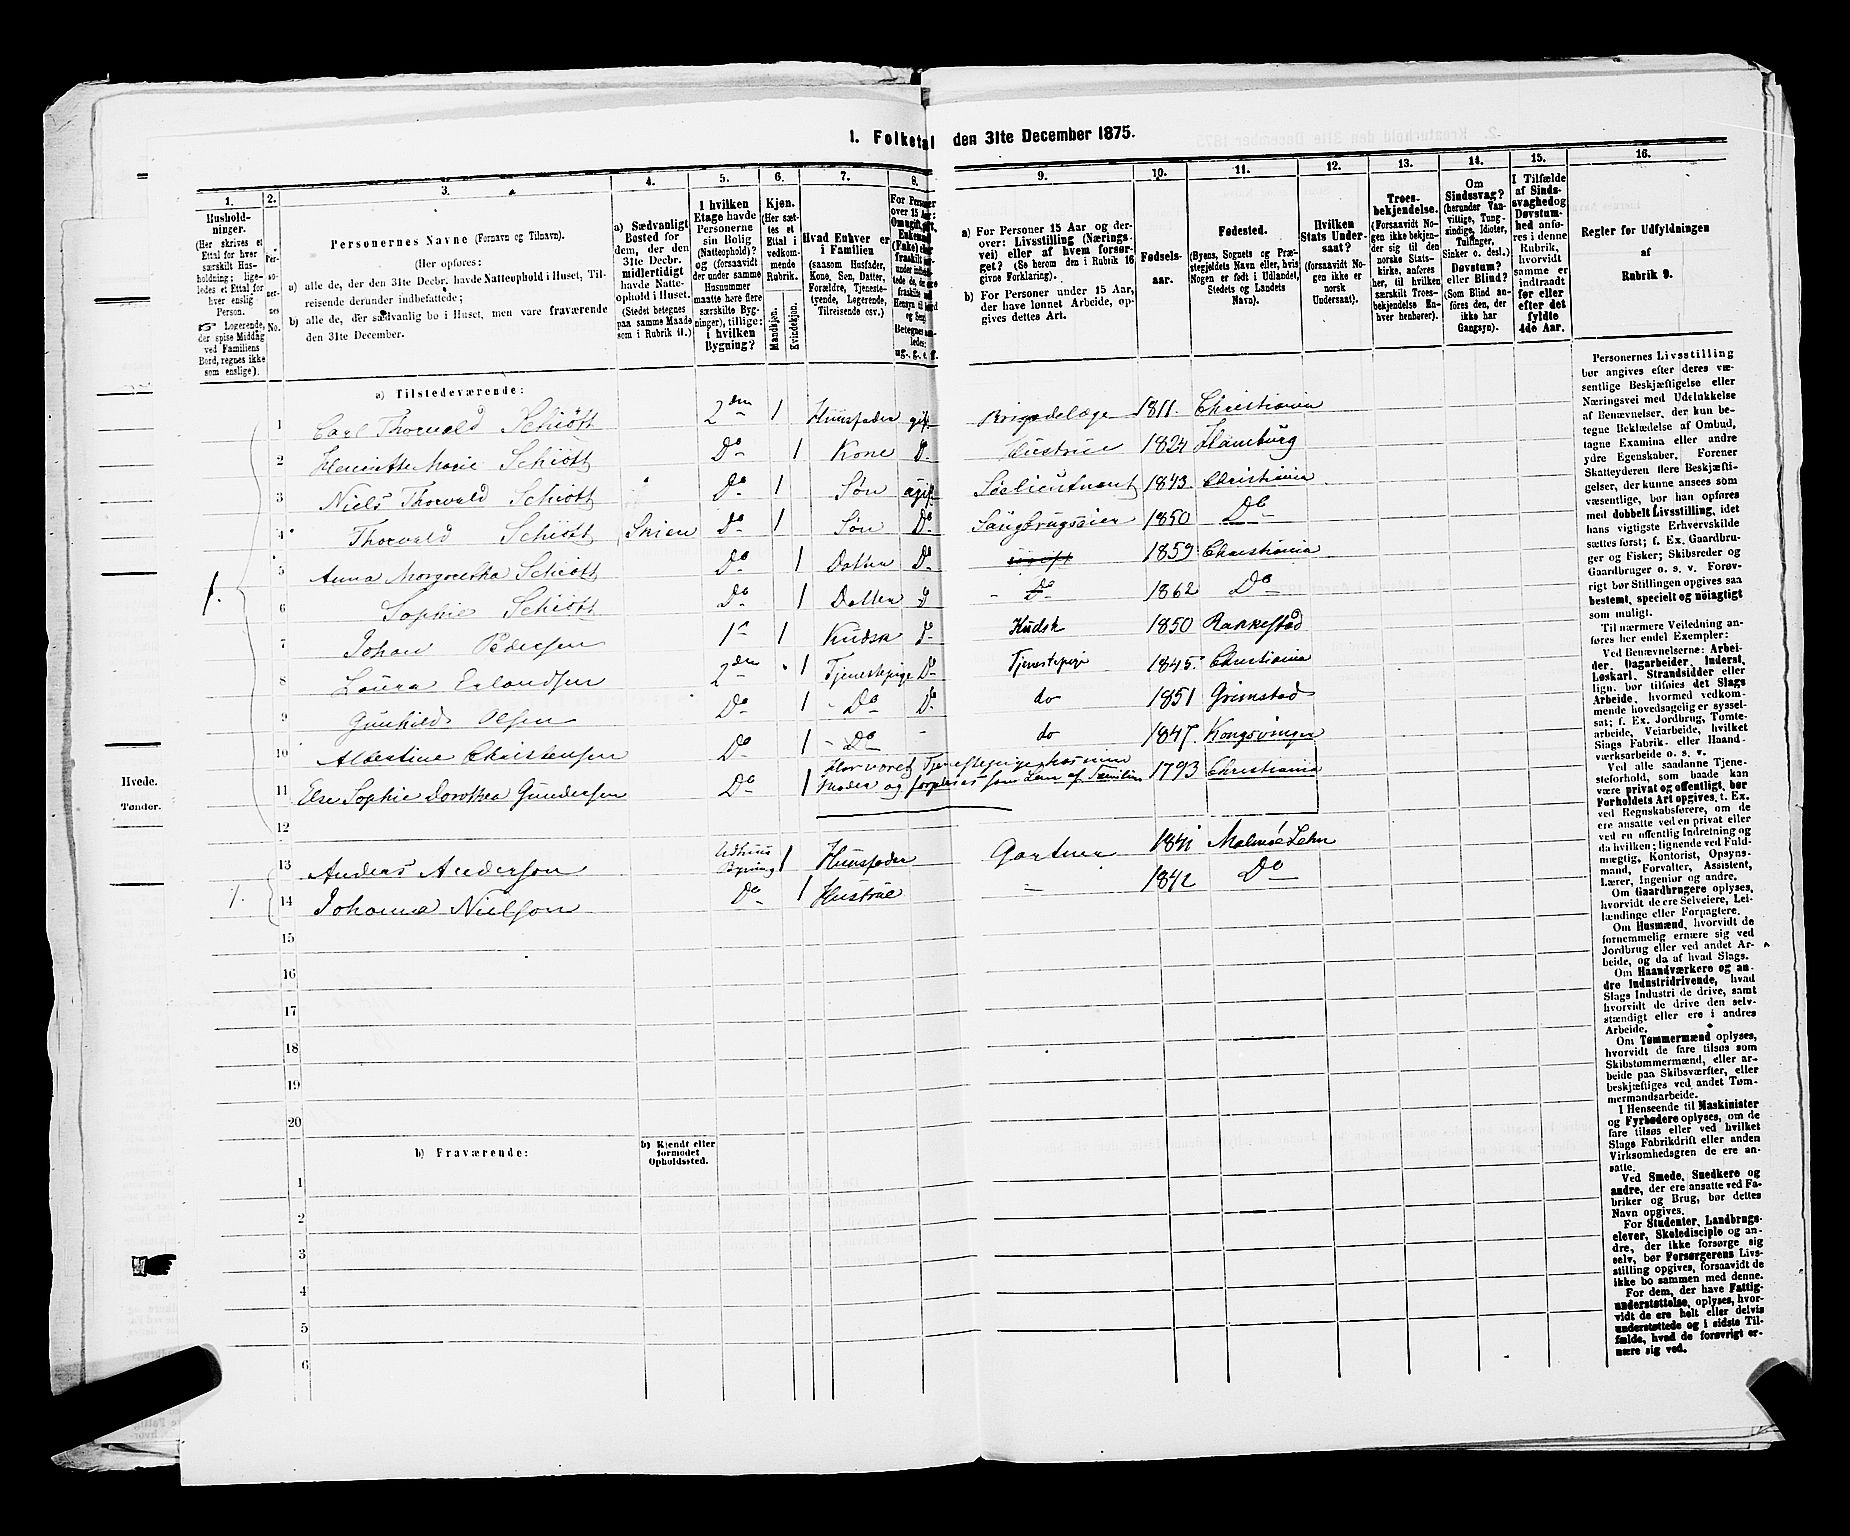 1. Folketal den 31te December 1875.
1. 2. 3. 4. 5. 6. 7. 8. 9. 10. 11. 12. 13. 14. 15. 16.
Husholdninger.
(Her skrives et
Ettal for hver
særskilt Husholdning;
ligeledes et Ettal for
hver enslig
Person.
Logerende,
der spise Middag
ved Familiens
Bord, regnes ikke
som enslige).
Personernes No.
Personernes Navne (Fornavn og Tilnavn).
(Her opføres:
a) alle de, der den 31te Decbr. havde Natteophold i Huset, Tilreisende derunder indbefattede;
b) alle de, der sædvanlig bo i Huset, men vare fraværende
den 31te December.
a) Sædvanligt
Bosted for
dem, der den
31te Decbr.
midlertidigt
havde Natteophold
i Huset.
(Stedet betegnes
paa samme Maade
som i Rubrik 11.)
I hvilken
Etage havde
Personerne
sin Bolig
(Natteophold)?
og (forsaavidt
der under samme
Husnummer
maatte høre flere
særskilte Bygninger),
tillige:
i hvilken
Bygning?
Kjøn.
(Her sættes et
Ettal i
vedkommende
Rubrik.
Mandkjøn. Kvindekjøn.
Hvad Enhver er
i Familien
(saasom Husfader,
Kone, Søn, Datter,
Forældre, Tjenestetyende,
Logerende,
Tilreisende osv.)
a) For Personer 15 Aar og derover:
Livsstilling (Næringsvei)
eller af hvem forsørget?
(Se herom den i Rubrik 16
givne Forklaring).
b) For Personer under 15 Aar,
der have lønnet Arbeide, opgives
dettes Art.
Fødselsaar.
Fødested.
(Byens, Sognets og Præstegjeldets
Navn eller, hvis
Nogen er født i Udlandet,
Stedets og Landets
Navn).
Hvilken
Stats Undersaat?
(forsaavidt Nogen
ikke er
norsk
Undersaat).
Troesbekjendelse.
(Forsaavidt Nogen
ikke bekjender
sig til den
norske Statskirke,
anføres
her, til hvilken
særskilt Troesbekjendelse
Enhver
henhører).
Om
Sindssvag?
(herunder Vanvittige,
Tungsindige,
Idioter,
Tullinger,
Sinker o. desl.)
Døvstum?
eller Blind?
(Som Blind anføres
den, der
ikke har
Gangsyn).
I Tilfælde
af Sindssvaghed
og
Døvstumhed
anføres
i denne
Rubrik,
hvorvidt
samme er
indtraadt
før eller
efter det
fyldte
4de Aar.
Regler for Udfyldningen
af
Rubrik 9.
a) Tilstedeværende:
1 Carl Thorvald Schiött 2den 1 Huusfader gift Brigadelæge 1811. Christiania
2 Henriette Marie Schiött Do 1 Kone Do Hustrue 1824 Hamburg
3 Niels Thorvald Schiött Do 1 Søn ugift Søelieutnant 1843. Christiania
4 Thorvald Schiött Skien Do 1 Søn Do Saugbrugseier 1850 Do
5 Anna Margretha Schiött Do 1 Datter Do 1859 Christiania
1. 6 Sophie Schiött Do 1 Datter Do Do 1862 Do
7 Johan Pedersen 1e 1 Kudsk Do Kudsk 1850 Rakkestad
8 Laura Erlandsen 2den 1 Tjenestepige Do Tjenestepige 1845. Christiania
9 Gunhild Olsen Do 1 Do Do do 1851 Grimstad
10 Albertine Christensen Do 1 Do do 1847. Kongsvinger
11 Else Sophie Dorothea Gundersen Do 1 Har været Tjenestepige hos min
Moder og forpleies som Lem af Familien 1793 Christiania
12
13 Anders Anderson Udhuus Bygning 1 Huusfader Gartner 1841 Malmöe Lehn
1. 14 Johanna Nielson Do 1 Hustrue 1842 Do
15
16
17
18
19
20
b) Fraværende:
b) Kjendt eller
formodet
Opholdssted.
1
2
3
4
5
6
Hvede.
Tønder.
Personernes Livsstilling
bør angives efter deres væsentlige
Beskjæftigelse eller
Næringsvei med Udelukkelse
af Benævnelser, der kun betegne
Beklædelse af Ombud,
tagne Examina eller andre
ydre Egenskaber. Forener
Skatteyderen flere Beskjæftigelser,
der kunne ansees som
væsentlige, bør han opføres
med dobbelt Livsstilling, idet
hans vigtigste Erhvervskilde
sættes først; f. Ex. Gaardbruger
og Fisker; Skibsreder og
Gaardbruger o. s. v. Forøvrigt
bør Stillingen opgives saa
bestemt, specielt og nøiagtigt
som muligt.
Til nærmere Veiledning anføres
her endel Exempler:
Ved Benævnelserne: Arbeider,
Dagarbeider, Inderst,
Løskarl, Strandsidder eller
lign. bør tilføies det Slags
Arbeide, hvormed vedkommende
hovedsagelig er sysselsat;
f. Ex. Jordbrug, Tømtearbeide,
Veiarbeide, hvilket
Slags Fabrik- eller Haandværksarbeide
o. s. v.
Ved alle saadanne Tjenesteforhold,
som baade kan
være privat og offentligt, bør
Forholdets Art opgives, t. Ex.
ved Regnskabsførere, om de
ere ansatte ved en privat eller
ved en offentlig Indretning og
da hvilken; lignende ved Fuldmægtig,
Kontorist, Opsynsmand,
Forvalter, Assistent,
Lærer, Ingeniør og andre.
Om Gaardbrugere oplyses,
hvorvidt de ere Selveiere, Leilændinge
eller Forpagtere.
Om Husmænd, hvorvidt de
fornemmelig ernære sig ved
Jordbrug eller ved andet Arbeide,
og da af hvad Slags.
Om Haandværkere og andre
Industridrivende, hvad
Slags Industri de drive, samt
hvorvidt de drive den selvstændigt
eller ere i andres
Arbeide.
Om Tømmermænd oplyses,
hvorvidt de fare tilsøs som
Skibstømmermænd, eller arbeide
paa Skibsværfter, eller
beskjæftiges ved andet Tømmermandsarbeide.
I Henseende til Maskinister
og Fyrbødere oplyses, om de
fare tilsøs eller ved hvilket
Slags Fabrikdrift eller anden
Virksomhedsgren de ere ansatte.
Ved Smede, Snedkere og
andre, der ere ansatte ved Fabriker
og Brug, bør dettes
Navn opgives.
For Studenter, Landbrugselever,
Skoledisciple og andre,
der ikke forsørge sig
selv, bør Forsørgerens Livsstilling
opgives, forsaavidt de
ikke bo sammen med denne.
For dem, der have Fattigunderstøttelse,
oplyses, hvorvidt
de ere helt eller delvis
understøttede og i sidste Tilfælde,
hvad de forøvrigt ernære
sig ved.